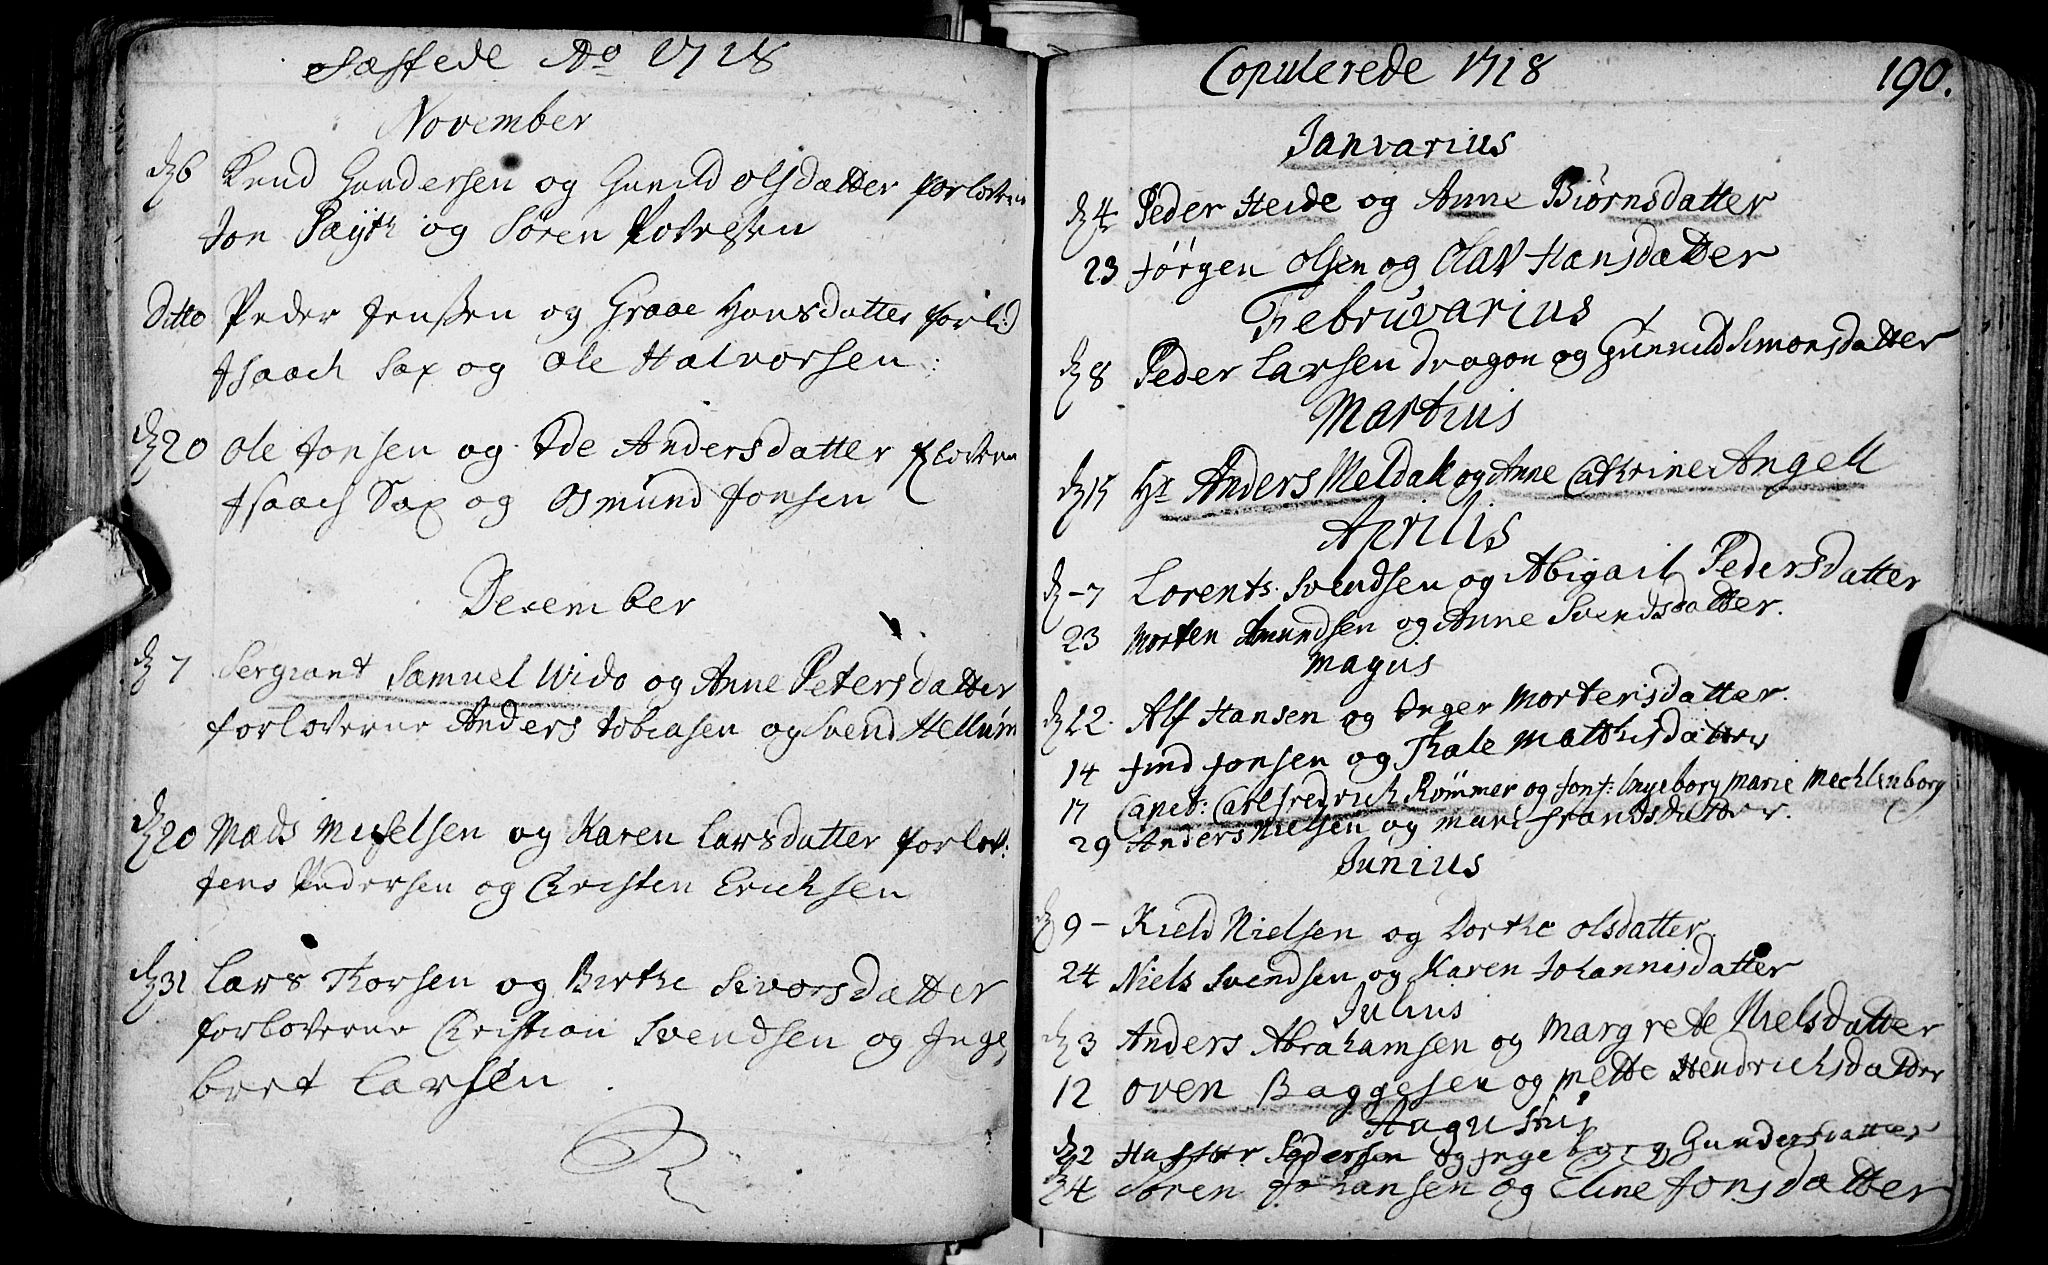 Fæstede Ao 1718
November
dz 6 Knud Gundersen og Gunild olsdatter forlovere
Jon og Søren Povelsen
Ditto Peder Jenssen og Graae Hansdatter forl:
Isaach Sax og Ole Halvorsen
dz 20 Ole Jonsen og Ide Andersdatter floverne
Isaach Sax og Osmund Jonsen
December
dz 7 Sergiant Samuel Wido og Anne Petersdatter
forloverne Anders Tobiasen og Svend Hellum
dz 20 Mads Michelsen og Karen Larsdatter forlov:
Jens Pedersen og Christen Erichsen
dz 31 Lars Thorsen og Birthe Sivorsdatter
forloverne Christian Svendsen og Inge,
bret Larsen
Copulerede 1718 190.
Ianvarius
dz 4 Peder Heide og Anne Biørnsdatter
23 Jørgen Olsen og Olav Hansdatter
Februvarius
dz 8 Peder Larsen dragon og Gunnild Simonsdatter
Martius
dz 15 Hr Anders Meldal og Anne Cathrine Angell
Aprilis
dz 7 Lorents Svendsen og Abigail Pedersdatter
23 Morten Amundsen og Anne Svendsdatter.
Majus
dz 12. Alf Hansen og Inger Mortensdatter.
14 Find Jonsen og Thale Mathisdatter
17 Capit: Carl fredrich Rømmer og Jomf: Ingeborg Marie Mechlenborg
29 Anders Nielsen og Mari frandsdatter.
Junius
dz 9 - Kield Nielsen og Dorthe olsdatter.
24 Niels Svendsen og Karen Johannisdatter
Julius
dz 3 Anders Abrahamsen og Margrete Nielsdatter
12 Oven Baggesen og Mette Hendrichsdatter
Augustus
dz 2 Pedersen og Ingeborg Gundersdatter
24 Søren Johansen og Eline Jonsdatter